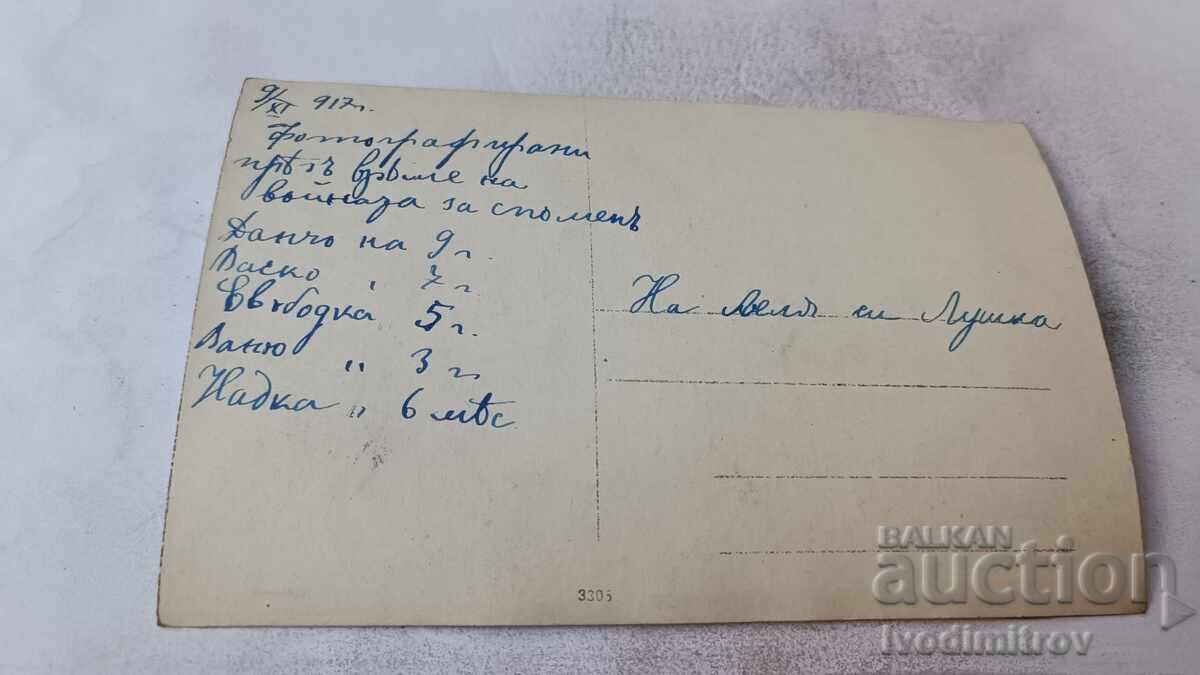 9/XI 917 г.
Фотографирани
прѣзъ врѣме на
войната за споменъ
Данчо на 9 г.
Васко " 7 г.
Свободка 5 г.
Ваню " 3 г.
Надка " 6 мѣс
На си Лушка
3306
BALKAN
auction
Ivodimitrov